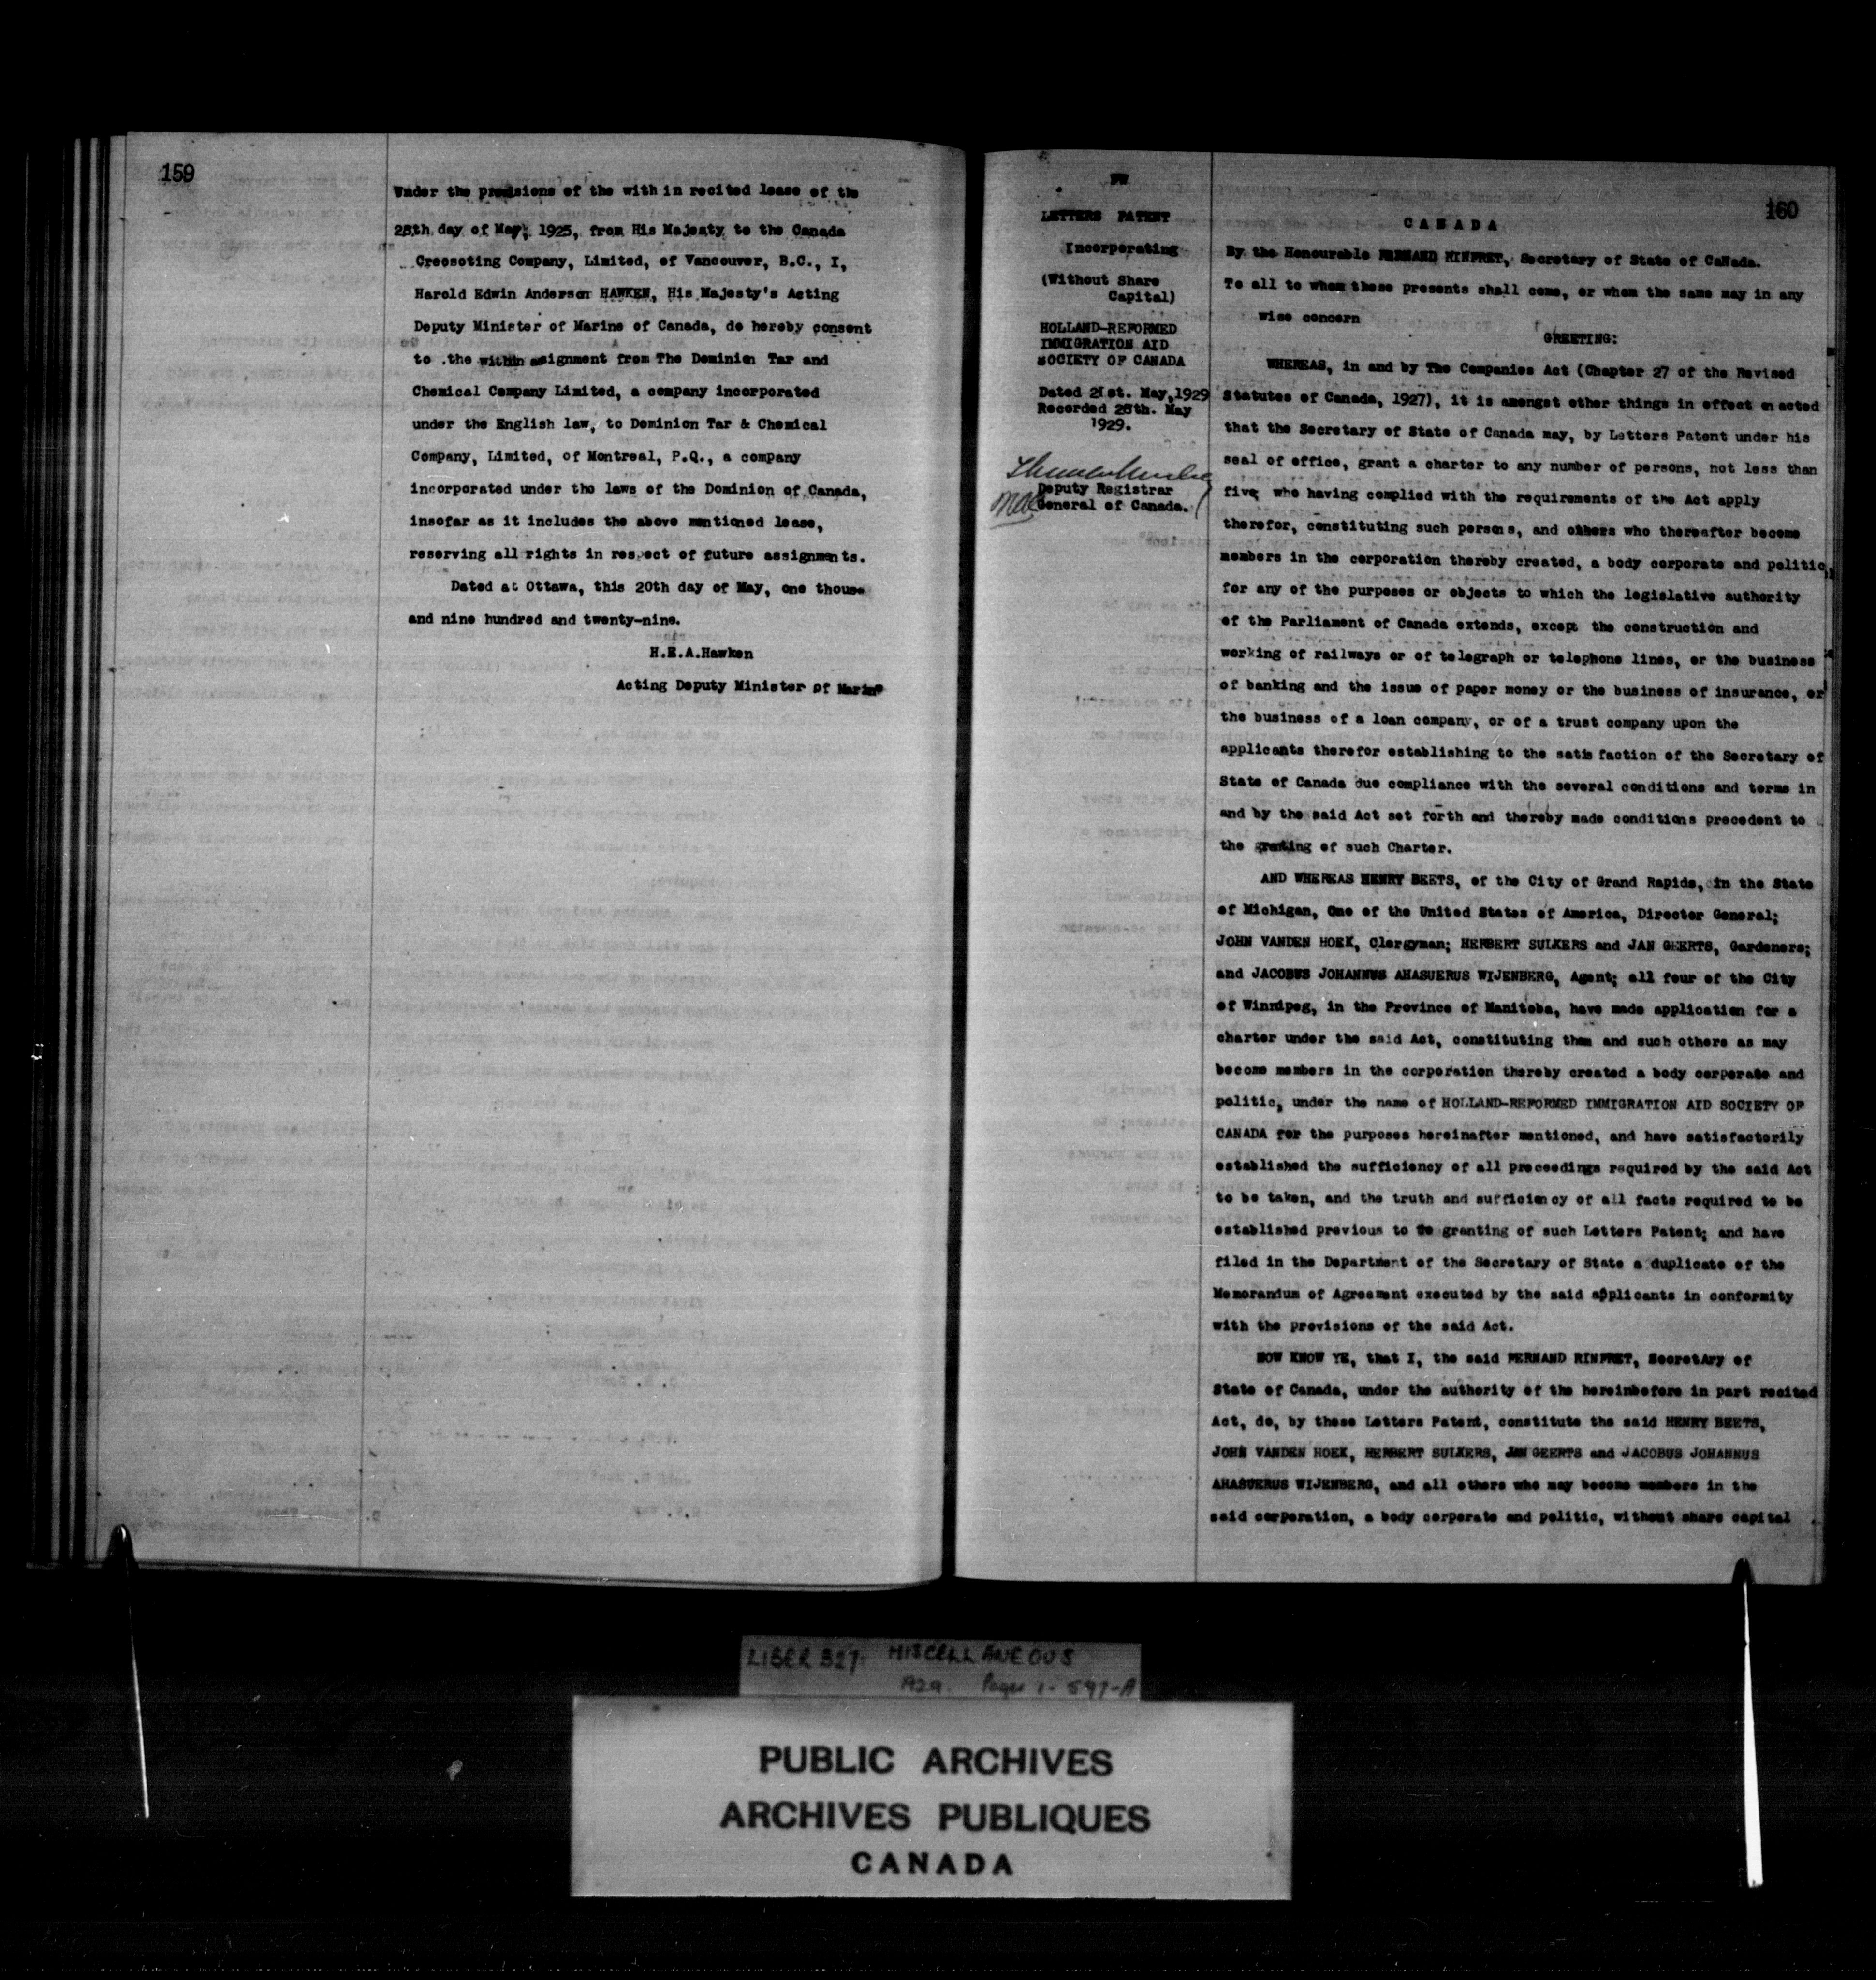 159
Under the provisions of the within recited lease of the
28th day of May, 1925, from His Majesty to the Canada
Creosoting Company, Limited, of Vancouver, B.C., I,
Harold Edwin Anderson HAWKEN, His Majesty's Acting
Deputy Minister of Marine of Canada, do hereby consent
to .the within assignment from The Dominion Tar and
Chemical Company Limited, a company incorporated
under the English law, to Dominion Tar & Chemical
Company, Limited, of Montreal, P.Q., a company
incorporated under the laws of the Dominion of Canada,
insofar as it includes the above mentioned lease,
reserving all rights in respect of future assignments.
Dated at Ottawa, this 20th day of May, one thous
and nine hundred and twenty-nine.
H.E.A.Hawken
Acting Deputy Minister of Marine
LETTERS PATENT
Incorporating
(Without Share
Capital)
HOLLAND-REFORMED
IMMIGRATION AID
SOCIETY OF CANADA
Dated 21st. May,1929
Recorded 28th. May
1929.
Deputy Registrar
General of Canada.
160
CANADA
By the Honourable FERNAND RINFRET, Secretary of State of CaNada.
To all to whom these presents shall come, or whom the same may in any
wise concern
GREETING:
WHEREAS, in and by The Companies Act (Chapter 27 of the Revised
Statutes of Canada, 1927), it is amongst other things in effect enacted
that the Secretary of State of Canada may, by Letters Patent under his
seal of office, grant a charter to any number of persons, not less than
five, who having complied with the requirements of the Act apply
therefor, constituting such persons, and others who thereafter become
members in the corporation thereby created, a body corporate and politic,
for any of the purposes or objects to which the legislative authority
of the Parliament of Canada extends, except the construction and
working of railways or of telegraph or telephone lines, or the business
of banking and the issue of paper money or the business of insurance, or
the business of a loan company, or of a trust company upon the
applicants therefor establishing to the satisfaction of the Secretary of
State of Canada due compliance with the several conditions and terms in
and by the said Act set forth and thereby made conditions precedent to
the granting of such Charter.
AND WHEREAS HENRY BEETS, of the City of Grand Rapids, in the State
of Michigan, One of the United States of America, Director General;
JOHN VANDEN HOEK, Clergyman; HERBERT SULKERS and JAN GEERTS, Gardeners;
and JACOBUS JOHANNUS AHASUERUS WIJENBERG, Agent; all four of the City
of Winnipeg, in the Province of Manitoba, have made application for a
charter under the said Act, constituting them and such others as may
become members in the corporation thereby created a body corporate and
politic, under the name of HOLLAND-REFORMED IMMIGRATION AID SOCIETY OF
CANADA for the purposes hereinafter mentioned, and have satisfactorily
established the sufficiency of all proceedings required by the said Act
to be taken, and the truth and sufficiency of all facts required to be
established previous to the granting of such Letters Patent; and have
filed in the Department of the Secretary of State a duplicate of the
Memorandum of Agreement executed by the said applicants in conformity
with the provisions of the said Act.
NOW KNOW YE, that I, the said FERNAND RINFRET, SecretAry of
State of Canada, under the authority of the hereinbefore in part recited
Act, do, by these Letters Patent, constitute the said HENRY BEETS,
JOHN VANDEN HOEK, HERBERT SULKERS, JAN GEERTS and JACOBUS JOHANNUS
AHASUERUS WIJENBERG, and all others who may become members in the
said corporation, a body corporate and politic, without share capital
LIBER 327: MISCELLANEOUS
1929. Pages 1-597-A
PUBLIC ARCHIVES
ARCHIVES PUBLIQUES
CANADA